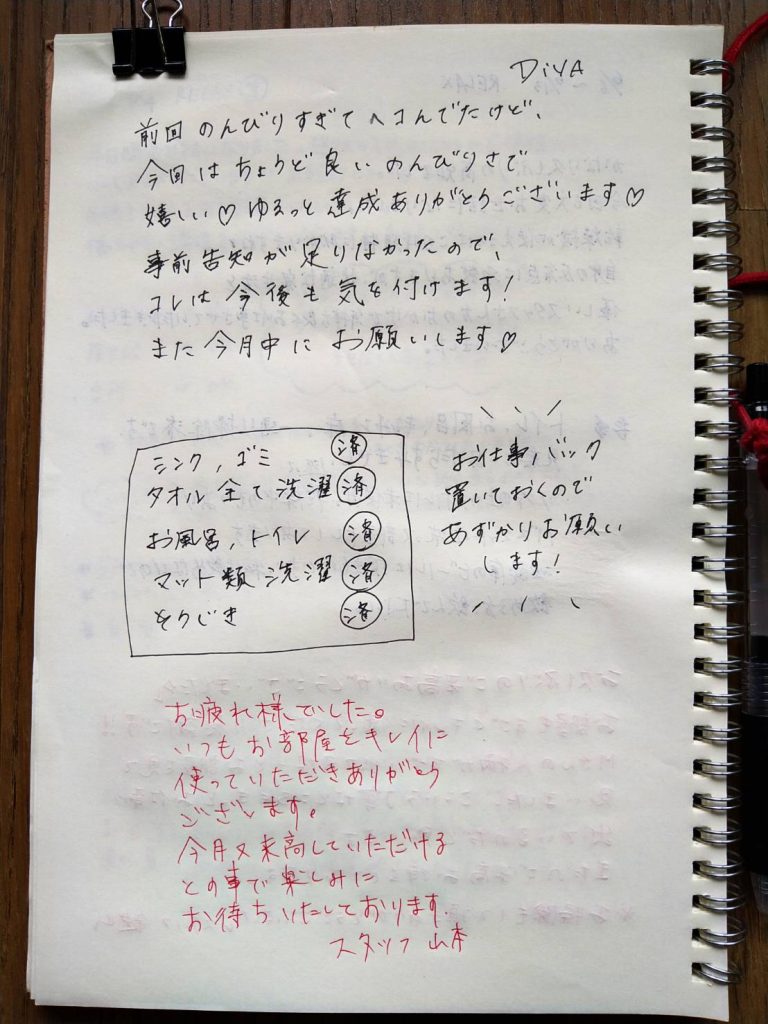 DiVA
前回のんびりすぎてヘコんでたけど、
今回はちょうど良いのんびりさで
嬉しい♡ゆるっと達成ありがとうございます♡
事前告知が足りなかったので、
コレは今後も気を付けます!
また今月中にお願いします♡
シンク,ゴミ 済
タオル全て洗濯 済
お風呂,トイレ 済
マット類洗濯 済
そうじき 済
お仕事バック
置いておくので
あずかりお願い
します!
お疲れ様でした。
いつもお部屋をキレイに
使っていただきありがとう
ございます。
今月又来高していただける
との事で楽しみに
お待ちいたしております。
スタッフ 山本